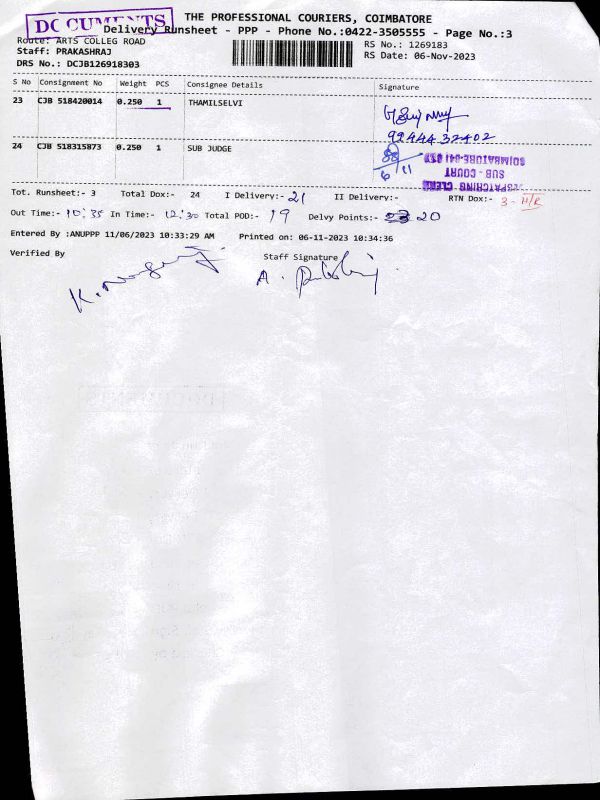 DOCUMENTS
THE PROFESSIONAL COURIERS, COIMBATORE
Delivery Runsheet - PPP - Phone No.:0422-3505555 - Page No.:3
Route: ARTS COLLEG ROAD
RS No.: 1269183
Staff: PRAKASHRAJ
RS Date: 06-Nov-2023
DRS No.: DCJB126918303
S No Consignment No Weight PCS Consignee Details Signature
23 CJB 518420014 0.250 1 THAMILSELVI
9244432402
24 CJB 518315873 0.250 1 SUB JUDGE
6/11
SUB - COURT
Tot. Runsheet:- 3 Total Dox:- 24 I Delivery:- 21 II Delivery:- RTN Dox:- 3 - H/R
Out Time:- 10:35 In Time:- 12:30 Total POD:- 19 Delvy Points:- 20
Entered By :ANUPPP 11/06/2023 10:33:29 AM Printed on: 06-11-2023 10:34:36
Verified By Staff Signature